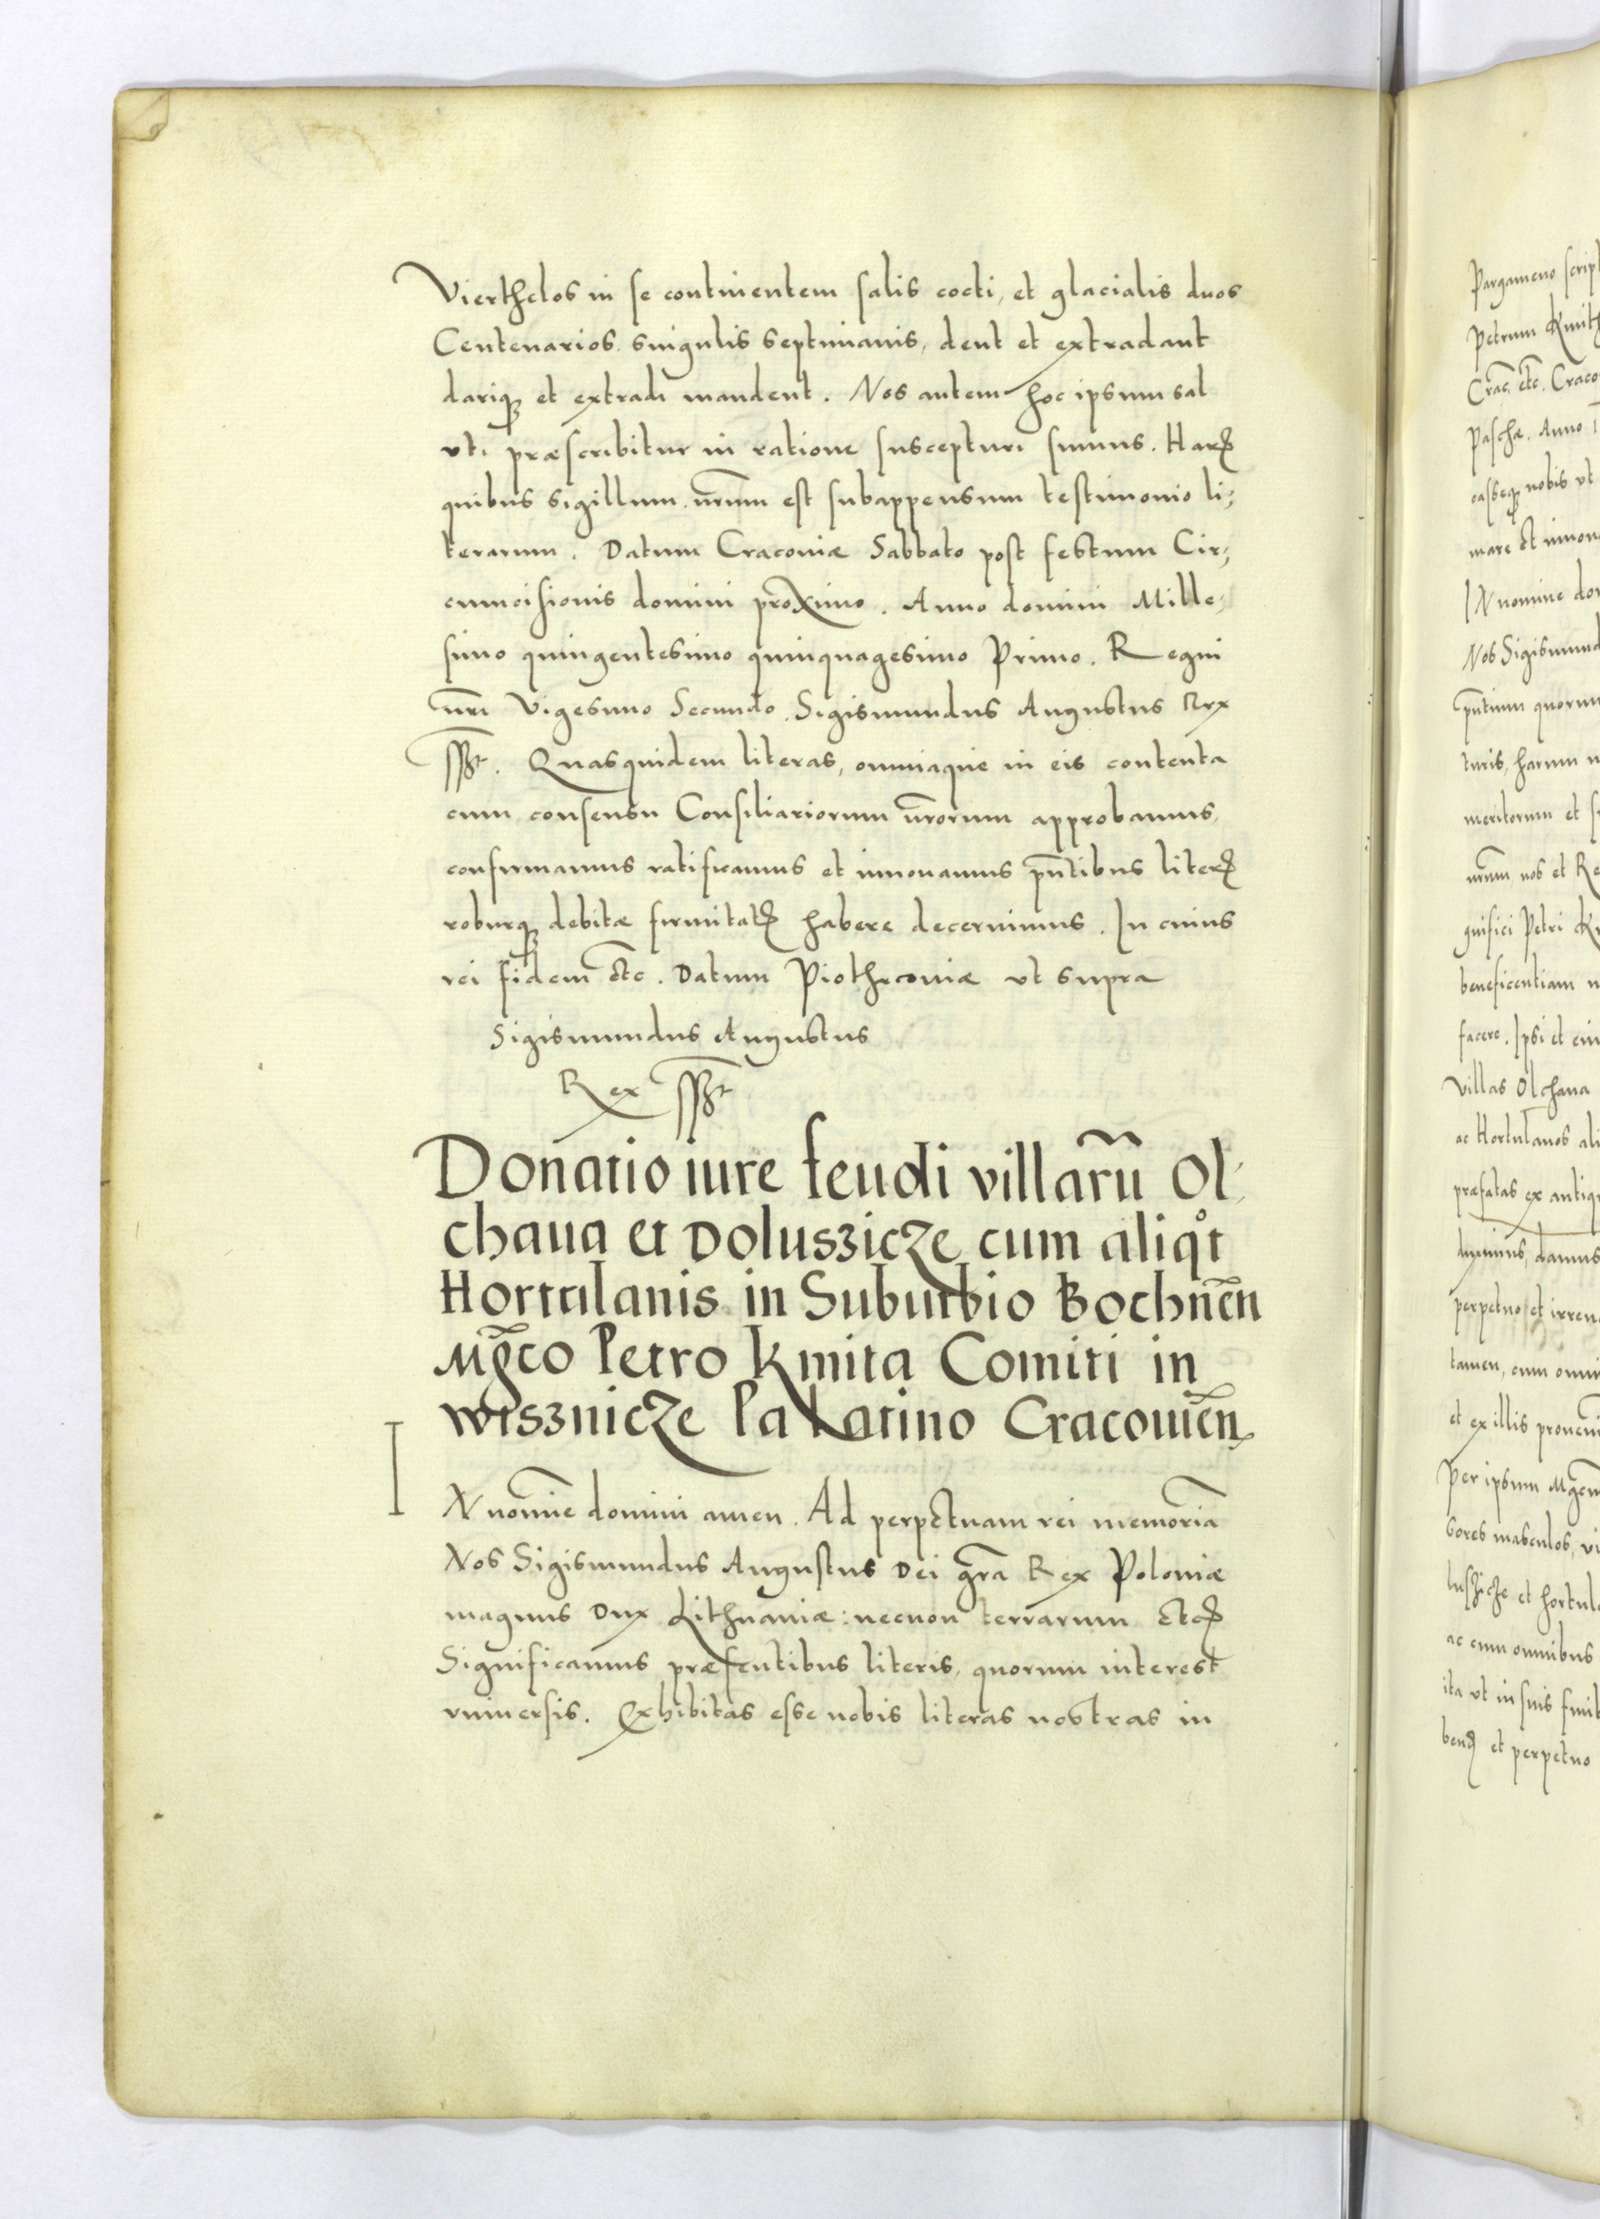 Vierthelos in se continentem salis cocti, et glacialis duos
Centenarios singulis septimanis, dent et extradant
dariq; et extradi mandent. Nos autem hoc ipsum sal
vti præscribitur in ratione suscepturi sumus. Harꝝ
quibus sigillum nr̃um est subappensum testimonio li-
terarum. Datum Cracoviæ Sabbato post festum Cir-
cumcisionis domini proximo. Anno domini Mille-
simo quingentesimo quinquagesimo Primo. Regni
nr̃i Vigesimo Secundo. Sigismundus Augustus Rex
sspt. Quasquidem literas, omniaque in eis contenta
cum consensu Consiliariorum nr̃orum approbamus,
confirmamus ratificamus et innouamus pñtibus literꝭ
roburq; debitæ firmitatꝭ habere decernimus. In cuius
rei fidem etc. Datum Piothrcouiæ vt supra
Sigismundus Augustus
Rex sspt
Donatio iure feudi villarũ Ol-
chaua et Doluszicze cum aliqͦt
Hortulanis in Suburbio Bochneñ
Mg̃co Petro Kmita Comiti in
Wisznicze Palatino Cracouieñ
IN nomĩe domini amen. Ad perpetuam rei memoriã
Nos Sigismundus Augustus Dei gr̃a Rex Poloniæ
magnus Dux Lithuaniæ: necnon terrarum etcꝭ
Significamus præsentibus literis, quorum interest
vniuersis. Exhibitas esse nobis literas nostras in
Pargameno script
Petrum Kmith
Crac̃ etc. Craco
Paschæ. Anno
easseq; nobis vt
mare et innou
IN nomine do
Nos Sigismund
pñtium quorum
turis, harum
meritorum et
nr̃um nos et Re
gnifici Petri K
beneficentiam
facere. Ipsi et
Villas Olchaua
ac Hortulanos ali
præfatas ex antiq
duximus, damus
perpetuo et irreu
tamen, cum omni
et ex illis proueni
Per ipsum
sores masculos,
luszicze et hortul
ac cum omnibus
ita vt in suis
et perpetuo